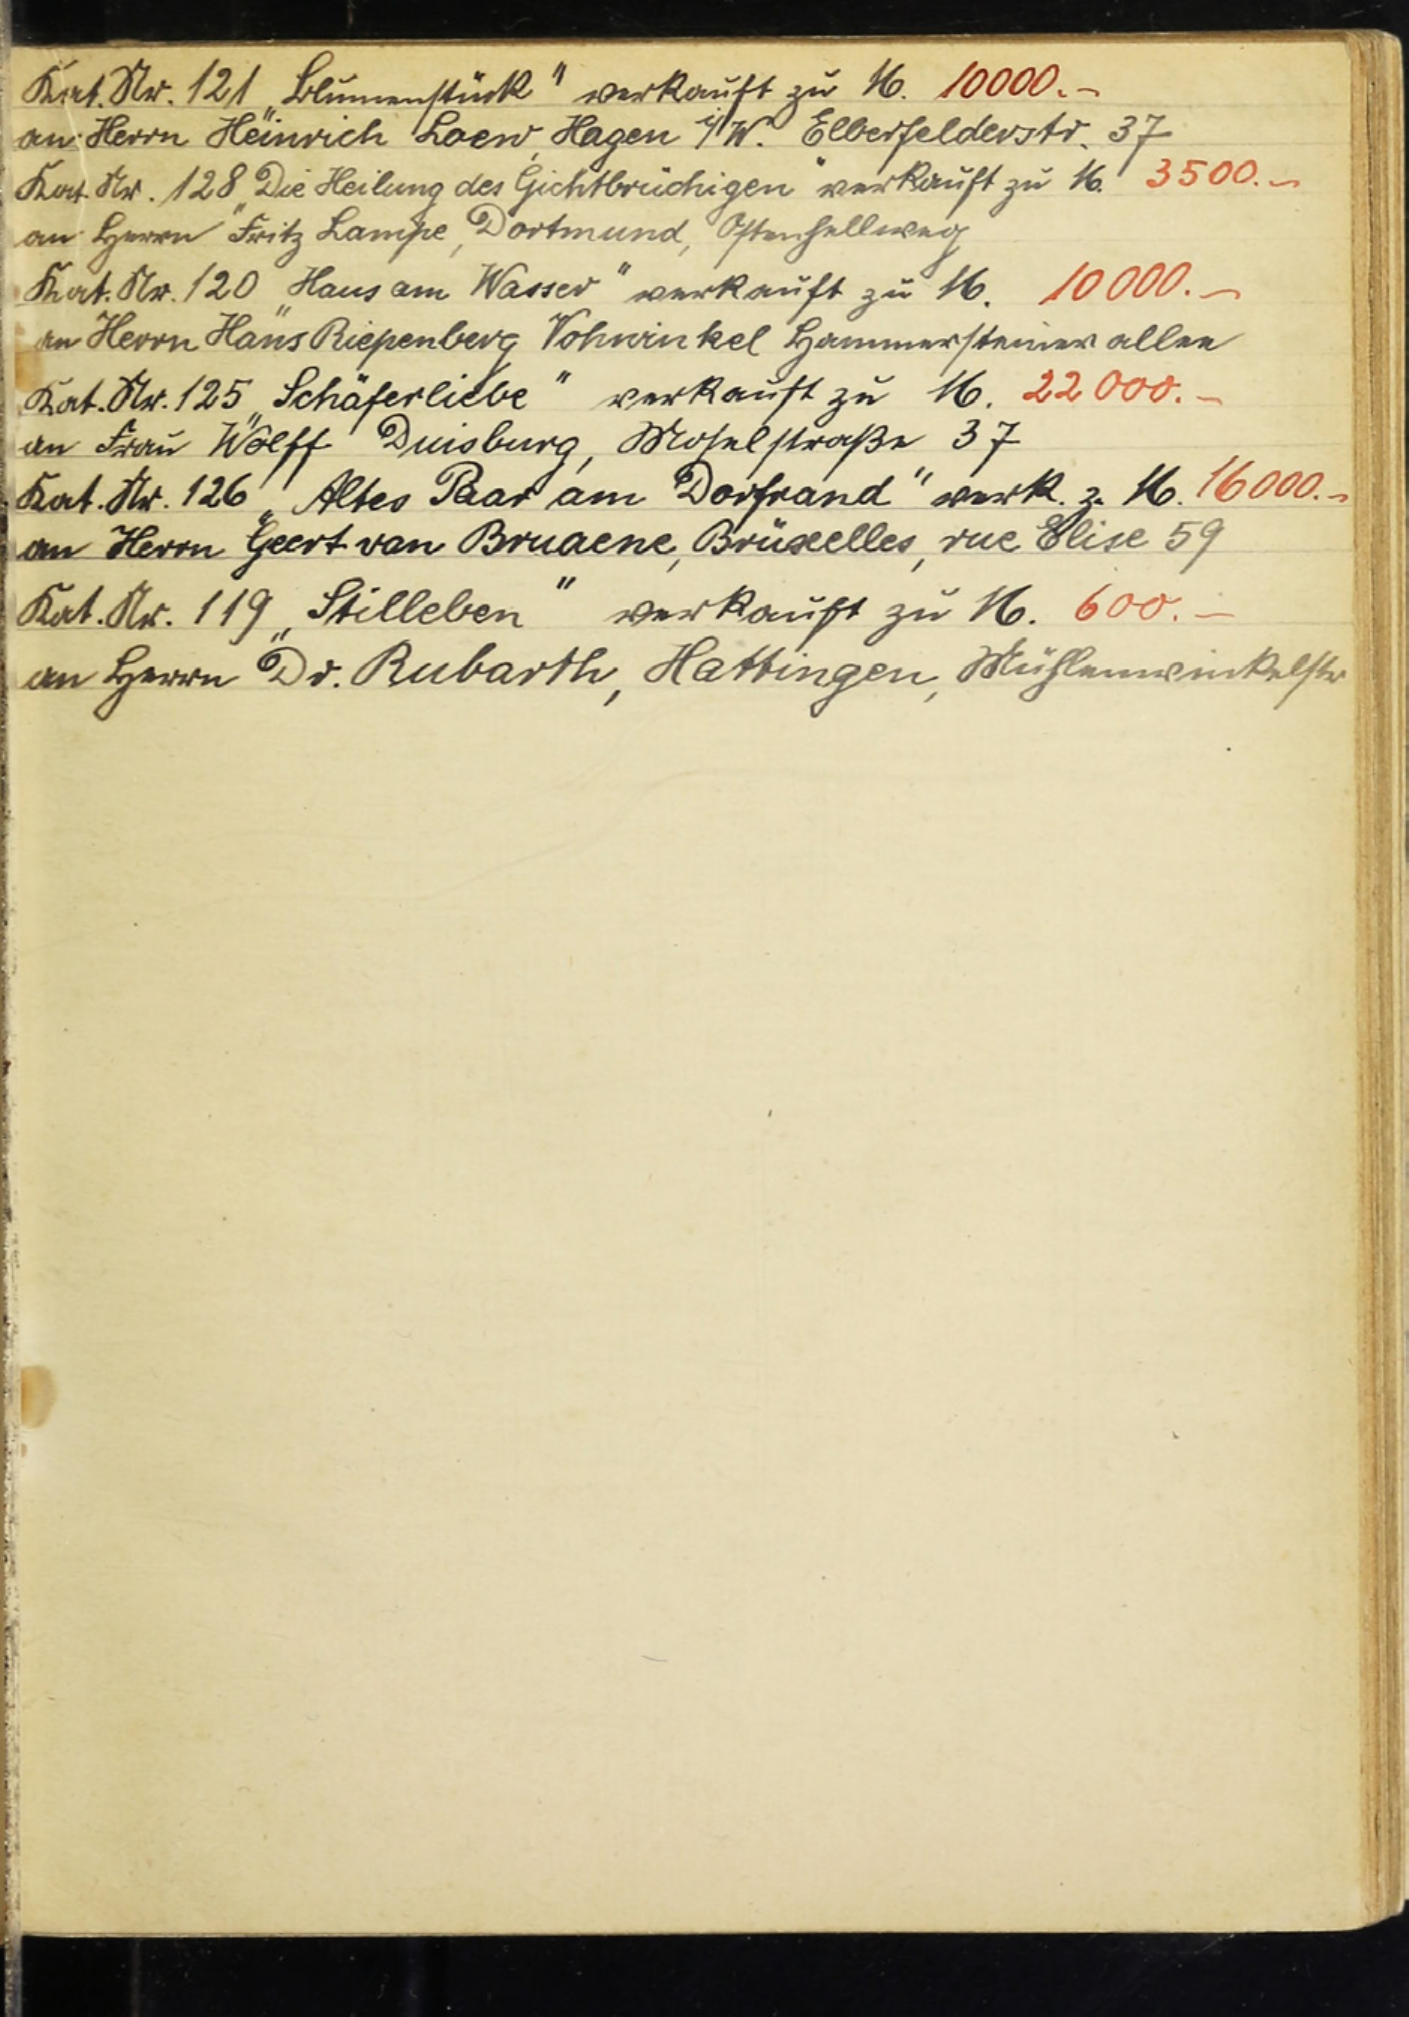 Kat. Nr. 121 „Blumenstück" verkauft zu M. 10000.-
an Herrn Heinrich Loew, Hagen i/W. Elberfelderstr. 37
Kat. Nr. 128 „Die Heilung des Gichtbrüchigen" verkauft zu M. 3500.-
an Herrn Fritz Lampe, Dortmund, Ostenhellweg
Kat. Nr. 120 „Haus am Wasser" verkauft zu M. 10000.-
an Herrn Hans Riepenberg Vohwinkel Hammersteinerallee
Kat. Nr. 125 „Schäferliebe" verkauft zu M. 22000.-
an Frau Wolff Duisburg, Moselstraße 37
Kat. Nr. 126 „Altes Paar am Dorfrand" verk. z. M. 16000.-
an Herrn Geert van Bruaene, Brüxelles, rue Elise 59
Kat. Nr. 119 „Stilleben" verkauft zu M. 600.-
an Herrn Dr. Rubarth, Hattingen, Mühlenwinkelstr